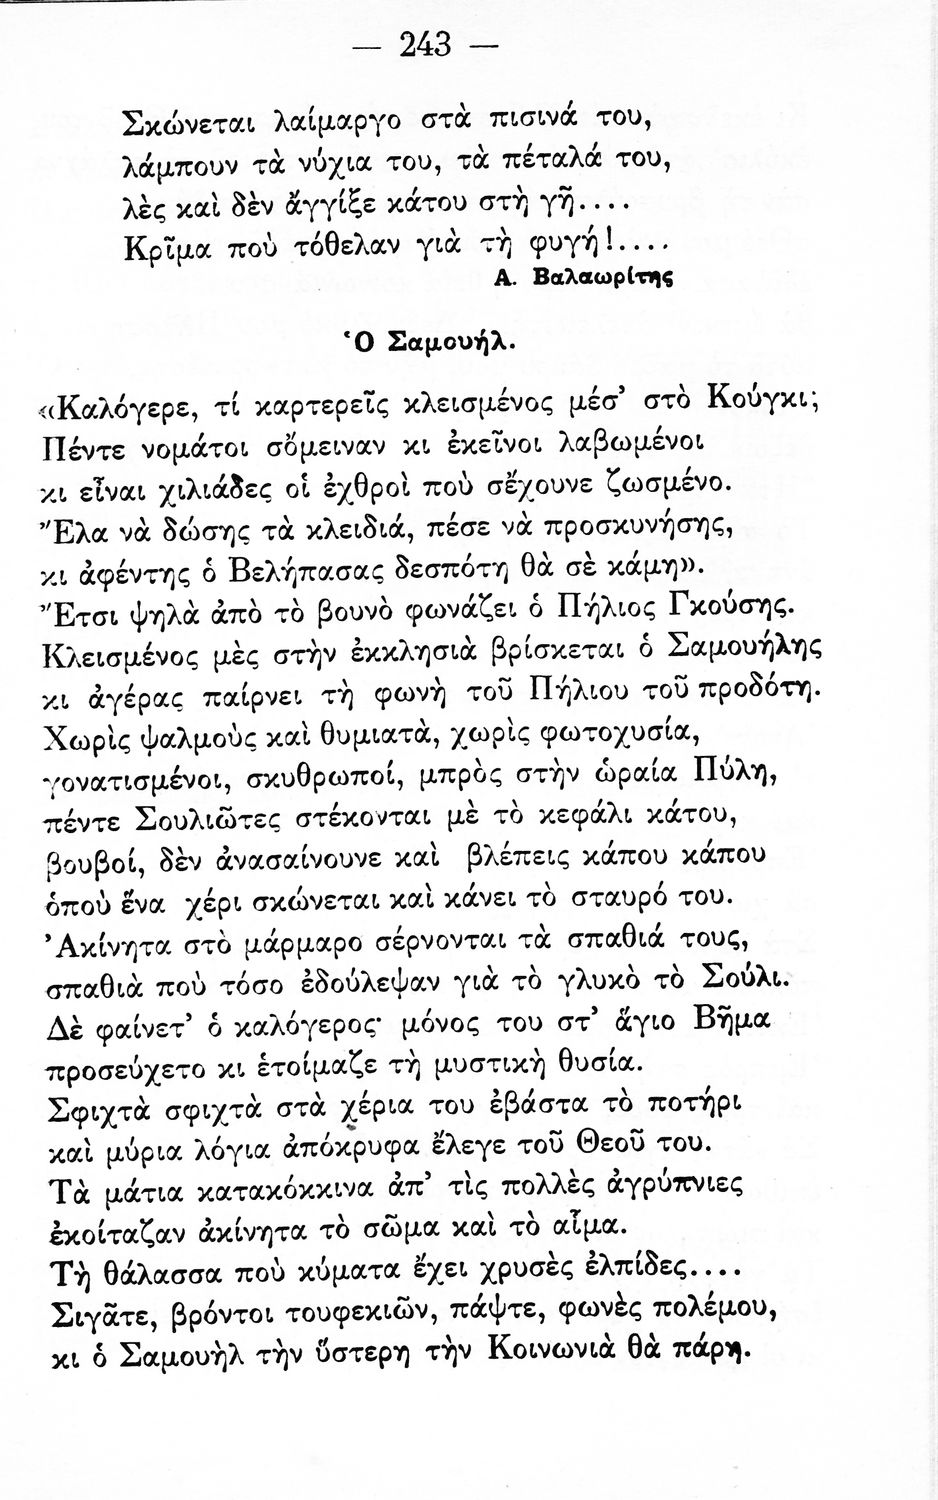 — 243 —
Σκώνεται λαίμαργο στὰ πισινά του,
λάμπουν τὰ νύχια του, τὰ πέταλά του,
λὲς καὶ δὲν ἄγγίξε κάτου στὴ γῆ....
Κρῖμα ποὺ τόθελαν γιὰ τὴ φυγή!....
Α. Βαλαωρίτης
Ὁ Σαμουήλ.
«Καλόγερε, τί καρτερεῖς κλεισμένος μέσ’ στὸ Κούγκι;
Πέντε νομάτοι σὄμειναν κι ἐκεῖνοι λαβωμένοι
κι εἶναι χιλιάδες οἱ ἐχθροὶ ποὺ σἔχουνε ζωσμένο.
Ἔλα νὰ δώσης τὰ κλειδιά, πέσε νὰ προσκυνήσης,
κι ἀφέντης ὁ Βελήπασας δεσπότη θὰ σὲ κάμη».
Ἔτσι ψηλὰ ἀπὸ τὸ βουνὸ φωνάζει ὁ Πήλιος Γκούσης.
Κλεισμένος μὲς στὴν ἐκκλησιὰ βρίσκεται ὁ Σαμουήλης
κι ἀγέρας παίρνει τὴ φωνὴ τοῦ Πήλιου τοῦ προδότη.
Χωρὶς ψαλμοὺς καὶ θυμιατὰ, χωρὶς φωτοχυσία,
γονατισμένοι, σκυθρωποί, μπρὸς στὴν ὡραία Πύλη,
πέντε Σουλιῶτες στέκονται μὲ τὸ κεφάλι κάτου,
βουβοί, δὲν ἀνασαίνουνε καὶ βλέπεις κάπου κάπου
ὁποὺ ἕνα χέρι σκώνεται καὶ κάνει τὸ σταυρό του.
Ἀκίνητα στὸ μάρμαρο σέρνονται τὰ σπαθιά τους,
σπαθιὰ ποὺ τόσο ἐδούλεψαν γιὰ τὸ γλυκὸ τὸ Σούλι.
Δὲ φαίνετ’ ὁ καλόγερος· μόνος του στ’ ἅγιο Βῆμα
προσεύχετο κι ἑτοίμαζε τὴ μυστικὴ θυσία.
Σφιχτὰ σφιχτὰ στὰ χέρια του ἐβάστα τὸ ποτήρι
καὶ μύρια λόγια ἀπόκρυφα ἔλεγε τοῦ Θεοῦ του.
Τὰ μάτια κατακόκκινα ἀπ’ τὶς πολλὲς ἀγρύπνιες
ἐκοίταζαν ἀκίνητα τὸ σῶμα καὶ τὸ αἷμα.
Τὴ θάλασσα ποὺ κύματα ἔχει χρυσὲς ἐλπίδες....
Σιγᾶτε, βρόντοι τουφεκιῶν, πάψτε, φωνὲς πολέμου,
κι ὁ Σαμουὴλ τὴν ὕστερη τὴν Κοινωνιὰ θὰ πάρη.